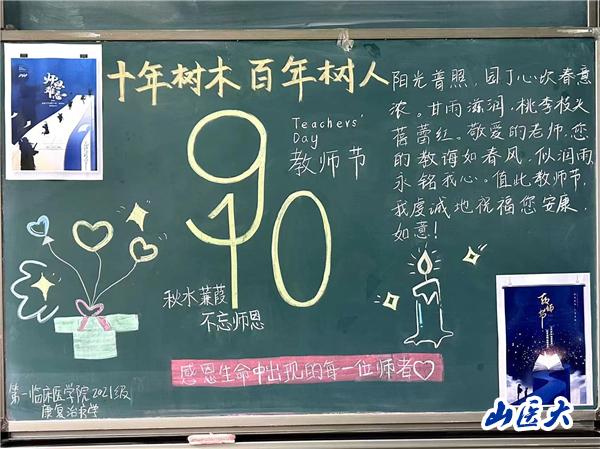 十年树木 百年树人
9
10
Teachers'
Day
教师节
阳光普照，园丁心坎春意
浓。甘雨滋润，桃李枝头
蓓蕾红。敬爱的老师，您
的教诲如春风，似润雨，
永铭我心。值此教师节，
我虔诚地祝福您安康，
如意！
秋水蒹葭
不忘师恩
感恩生命中出现的每一位师者
第一临床医学院2021级
康复治疗学
山医大